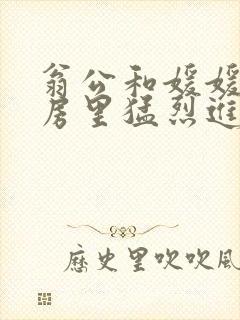 翁公和媛媛
居里猛烈進
歷史里吹吹風